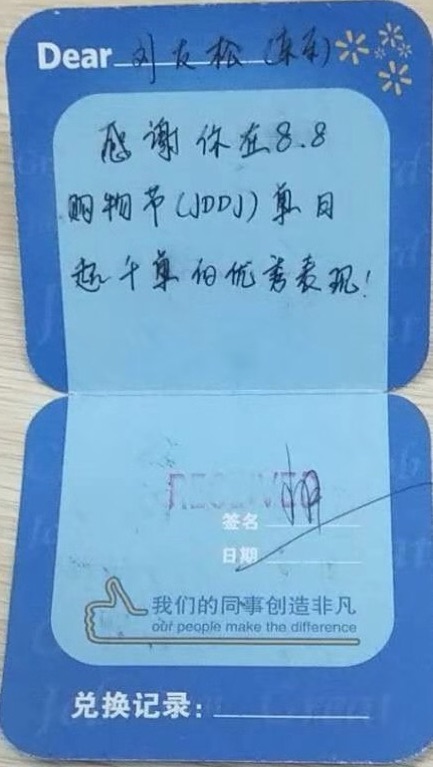 Dear 刘友松(京东)
感谢你在8.8
购物节(JDDJ)单日
超千单的优秀表现!
RECEIVED
签名
日期
我们的同事创造非凡
our people make the difference
兑换记录: